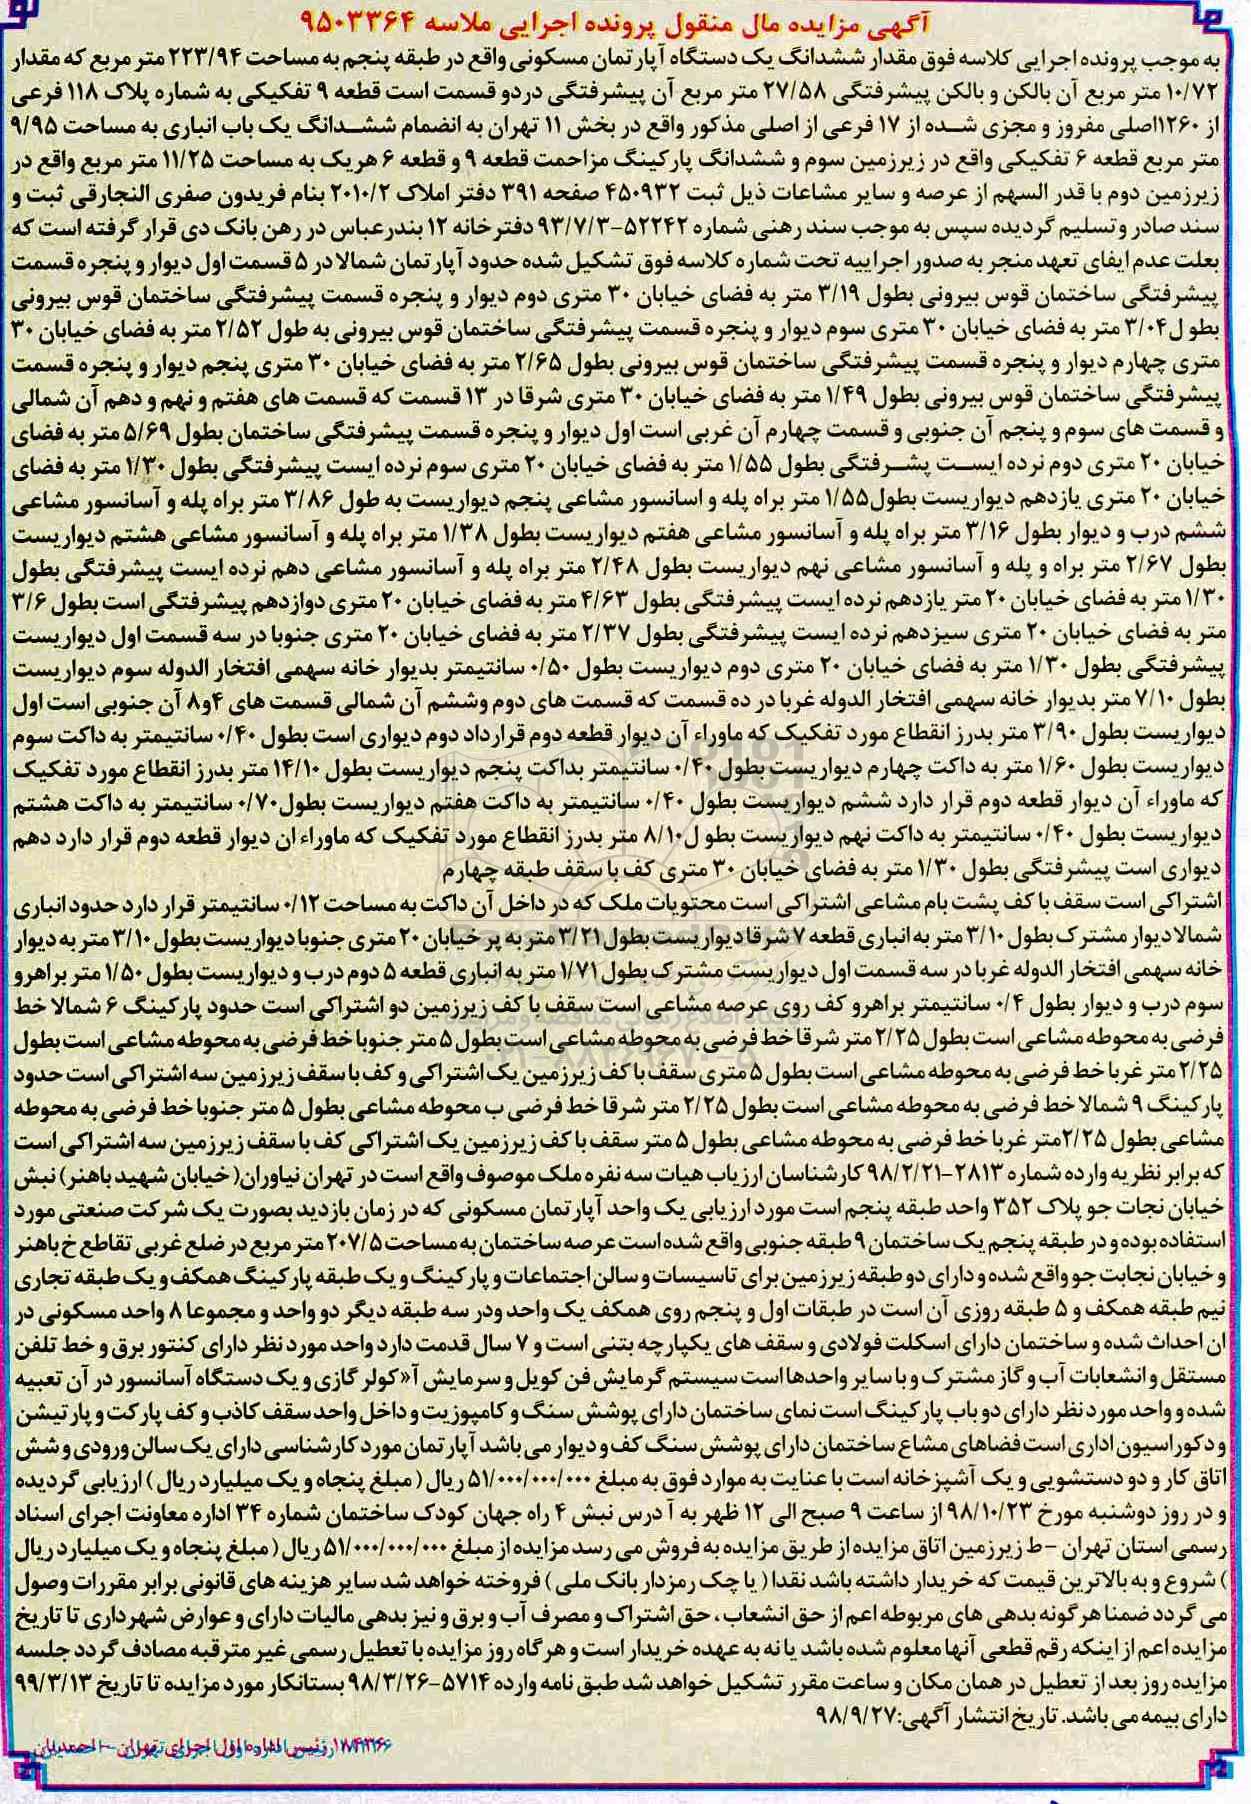 آگهی مزایده مال منقول پرونده اجرایی ملاسه ۹۵۰۳۳۶۴
به موجب پرونده اجرایی کلاسه فوق مقدار ششدانگ یک دستگاه آپارتمان مسکونی واقع در طبقه پنجم به مساحت ۲۲۳/۹۴ متر مربع که مقدار
۱۰/۷۲ متر مربع آن بالکن و بالکن پیشرفتگی ۲۷/۵۸ متر مربع آن پیشرفتگی دردو قسمت است قطعه ۹ تفکیکی به شماره پلاک ۱۱۸ فرعی
از ۱۲۶۰اصلی مفروز و مجزی شده از ۱۷ فرعی از اصلی مذکور واقع در بخش ۱۱ تهران به انضمام ششدانگ یک باب انباری به مساحت ۹/۹۵
متر مربع قطعه ۶ تفکیکی واقع در زیرزمین سوم و ششدانگ پارکینگ مزاحمت قطعه ۹ و قطعه ۶ هریک به مساحت ۱۱/۲۵ متر مربع واقع در
زیرزمین دوم با قدر السهم از عرصه و سایر مشاعات ذیل ثبت ۴۵۰۹۳۲ صفحه ۳۹۱ دفتر املاک ۲۰۱۰/۲ بنام فریدون صفری النجارقی ثبت و
سند صادر وتسلیم گردیده سپس به موجب سند رهنی شماره ۵۲۲۴۲-۹۳/۷/۳ دفترخانه ۱۲ بندرعباس در رهن بانک دی قرار گرفته است که
بعلت عدم ایفای تعهد منجر به صدور اجراییه تحت شماره کلاسه فوق تشکیل شده حدود آپارتمان شمالا در ۵ قسمت اول دیوار و پنجره قسمت
پیشرفتگی ساختمان قوس بیرونی بطول ۳/۱۹ متر به فضای خیابان ۳۰ متری دوم دیوار و پنجره قسمت پیشرفتگی ساختمان قوس بیرونی
بطو ل۳/۰۴ متر به فضای خیابان ۳۰ متری سوم دیوار و پنجره قسمت پیشرفتگی ساختمان قوس بیرونی به طول ۲/۵۲ متر به فضای خیابان ۳۰
متری چهارم دیوار و پنجره قسمت پیشرفتگی ساختمان قوس بیرونی بطول ۲/۶۵ متر به فضای خیابان ۳۰ متری پنجم دیوار و پنجره قسمت
پیشرفتگی ساختمان قوس بیرونی بطول ۱/۴۹ متر به فضای خیابان ۳۰ متری شرقا در ۱۳ قسمت که قسمت های هفتم و نهم و دهم آن شمالی
و قسمت های سوم و پنجم آن جنوبی و قسمت چهارم آن غربی است اول دیوار و پنجره قسمت پیشرفتگی ساختمان بطول ۵/۶۹ متر به فضای
خیابان ۲۰ متری دوم نرده ایست پشرفتگی بطول ۱/۵۵ متر به فضای خیابان ۲۰ متری سوم نرده ایست پیشرفتگی بطول ۱/۳۰ متر به فضای
خیابان ۲۰ متری یازدهم دیواریست بطول۱/۵۵ متر براه پله و اسانسور مشاعی پنجم دیواریست به طول ۳/۸۶ متر براه پله و آسانسور مشاعی
ششم درب و دیوار بطول ۳/۱۶ متر براه پله و آسانسور مشاعی هفتم دیواریست بطول ۱/۳۸ متر براه پله و آسانسور مشاعی هشتم دیواریست
بطول ۲/۶۷ متر براه و پله و آسانسور مشاعی نهم دیواریست بطول ۲/۴۸ متر براه پله و آسانسور مشاعی دهم نرده ایست پیشرفتگی بطول
۱/۳۰ متر به فضای خیابان ۲۰ متر یازدهم نرده ایست پیشرفتگی بطول ۴/۶۳ متر به فضای خیابان ۲۰ متری دوازدهم پیشرفتگی است بطول ۳/۶
متر به فضای خیابان ۲۰ متری سیزدهم نرده ایست پیشرفتگی بطول ۲/۳۷ متر به فضای خیابان ۲۰ متری جنوبا در سه قسمت اول دیواریست
پیشرفتگی بطول ۱/۳۰ متر به فضای خیابان ۲۰ متری دوم دیواریست بطول ۰/۵۰ سانتیمتر بدیوار خانه سهمی افتخار الدوله سوم دیواریست
بطول ۷/۱۰ متر بدیوار خانه سهمی افتخار الدوله غربا در ده قسمت که قسمت های دوم وششم آن شمالی قسمت های ۴و۸ آن جنوبی است اول
دیواریست بطول ۳/۹۰ متر بدرز انقطاع مورد تفکیک که ماوراء آن دیوار قطعه دوم قرارداد دوم دیواری است بطول ۰/۴۰ سانتیمتر به داکت سوم
دیواریست بطول ۱/۶۰ متر به داکت چهارم دیواریست بطول ۰/۴۰ سانتیمتر بداکت پنجم دیواریست بطول ۱۴/۱۰ متر بدرز انقطاع مورد تفکیک
که ماوراء آن دیوار قطعه دوم قرار دارد ششم دیواریست بطول ۰/۴۰ سانتیمتر به داکت هفتم دیواریست بطول۰/۷۰ سانتیمتر به داکت هشتم
دیواریست بطول ۰/۴۰ سانتیمتر به داکت نهم دیواریست بطو ل۸/۱۰ متر بدرز انقطاع مورد تفکیک که ماوراء ان دیوار قطعه دوم قرار دارد دهم
دیواری است پیشرفتگی بطول ۱/۳۰ متر به فضای خیابان ۳۰ متری کف با سقف طبقه چهارم
اشتراکی است سقف با کف پشت بام مشاعی اشتراکی است محتویات ملک که در داخل آن داکت به مساحت ۰/۱۲ سانتیمتر قرار دارد حدود انباری
شمالا دیوار مشترک بطول ۳/۱۰ متر به انباری قطعه ۷ شرقا دیواریست بطول ۳/۲۱ متر به پر خیابان ۲۰ متری جنوبا دیواریست بطول ۳/۱۰ متر به دیوار
خانه سهمی افتخار الدوله غربا در سه قسمت اول دیواریست مشترک بطول ۱/۷۱ متر به انباری قطعه ۵ دوم درب و دیواریست بطول ۱/۵۰ متر براهرو
سوم درب و دیوار بطول ۰/۴ سانتیمتر براهرو کف روی عرصه مشاعی است سقف با کف زیرزمین دو اشتراکی است حدود پارکینگ ۶ شمالا خط
فرضی به محوطه مشاعی است بطول ۲/۲۵ متر شرقا خط فرضی به محوطه مشاعی است بطول ۵ متر جنوبا خط فرضی به محوطه مشاعی است بطول
۲/۲۵ متر غربا خط فرضی به محوطه مشاعی است بطول ۵ متری سقف با کف زیرزمین یک اشتراکی و کف با سقف زیرزمین سه اشتراکی است حدود
پارکینگ ۹ شمالا خط فرضی به محوطه مشاعی است بطول ۲/۲۵ متر شرقا خط فرضی ب محوطه مشاعی بطول ۵ متر جنوبا خط فرضی به محوطه
مشاعی بطول ۲/۲۵متر غربا خط فرضی به محوطه مشاعی بطول ۵ متر سقف با کف زیرزمین یک اشتراکی کف با سقف زیرزمین سه اشتراکی است
که برابر نظریه وارده شماره ۲۸۱۳-۹۸/۲/۲۱ کارشناسان ارزیاب هیات سه نفره ملک موصوف واقع است در تهران نیاوران( خیابان شهید باهنر) نبش
خیابان نجات جو پلاک ۳۵۲ واحد طبقه پنجم است مورد ارزیابی یک واحد آپارتمان مسکونی که در زمان بازدید بصورت یک شرکت صنعتی مورد
استفاده بوده و در طبقه پنجم یک ساختمان ۹ طبقه جنوبی واقع شده است عرصه ساختمان به مساحت ۲۰۷/۵ متر مربع در ضلع غربی تقاطع خ باهنر
و خیابان نجابت جو واقع شده و دارای دو طبقه زیرزمین برای تاسیسات و سالن اجتماعات و پارکینگ و یک طبقه پارکینگ همکف و یک طبقه تجاری
نیم طبقه همکف و ۵ طبقه روزی آن است در طبقات اول و پنجم روی همکف یک واحد ودر سه طبقه دیگر دو واحد و مجموعا ۸ واحد مسکونی در
ان احداث شده و ساختمان دارای اسکلت فولادی و سقف های یکپارچه بتنی است و ۷ سال قدمت دارد واحد مورد نظر دارای کنتور برق و خط تلفن
مستقل و انشعابات آب و گاز مشترک و با سایر واحدها است سیستم گرمایش فن کویل و سرمایش آ« کولر گازی و یک دستگاه آسانسور در آن تعبیه
شده و واحد مورد نظر دارای دو باب پارکینگ است نمای ساختمان دارای پوشش سنگ و کامپوزیت و داخل واحد سقف کاذب و کف پارکت و پارتیشن
و دکوراسیون اداری است فضاهای مشاع ساختمان دارای پوشش سنگ کف و دیوار می باشد آپارتمان مورد کارشناسی دارای یک سالن ورودی و شش
اتاق کار و دو دستشویی و یک آشپزخانه است با عنایت به موارد فوق به مبلغ ۵۱/۰۰۰/۰۰۰/۰۰۰ ریال ( مبلغ پنجاه و یک میلیارد ریال ) ارزیابی گردیده
و در روز دوشنبه مورخ ۹۸/۱۰/۲۳ از ساعت ۹ صبح الی ۱۲ ظهر به آ درس نبش ۴ راه جهان کودک ساختمان شماره ۳۴ اداره معاونت اجرای اسناد
رسمی استان تهران -ط زیرزمین اتاق مزایده از طریق مزایده به فروش می رسد مزایده از مبلغ ۵۱/۰۰۰/۰۰۰/۰۰۰ ریال ( مبلغ پنجاه و یک میلیارد ریال
) شروع و به بالاترین قیمت که خریدار داشته باشد نقدا ( یا چک رمزدار بانک ملی ) فروخته خواهد شد سایر هزینه های قانونی برابر مقررات وصول
می گردد ضمنا هر گونه بدهی های مربوطه اعم از حق انشعاب ، حق اشتراک و مصرف آب و برق و نیز بدهی مالیات دارای و عوارض شهرداری تا تاریخ
مزایده اعم از اینکه رقم قطعی آنها معلوم شده باشد یا نه به عهده خریدار است و هر گاه روز مزایده با تعطیل رسمی غیر مترقبه مصادف گردد جلسه
مزایده روز بعد از تعطیل در همان مکان و ساعت مقرر تشکیل خواهد شد طبق نامه وارده ۵۷۱۴-۹۸/۳/۲۶ بستانکار مورد مزایده تا تاریخ ۹۹/۳/۱۳
دارای بیمه می باشد. تاریخ انتشار آگهی:۹۸/۹/۲۷
رئیس اداره اول اجرای تهران - احمدیان